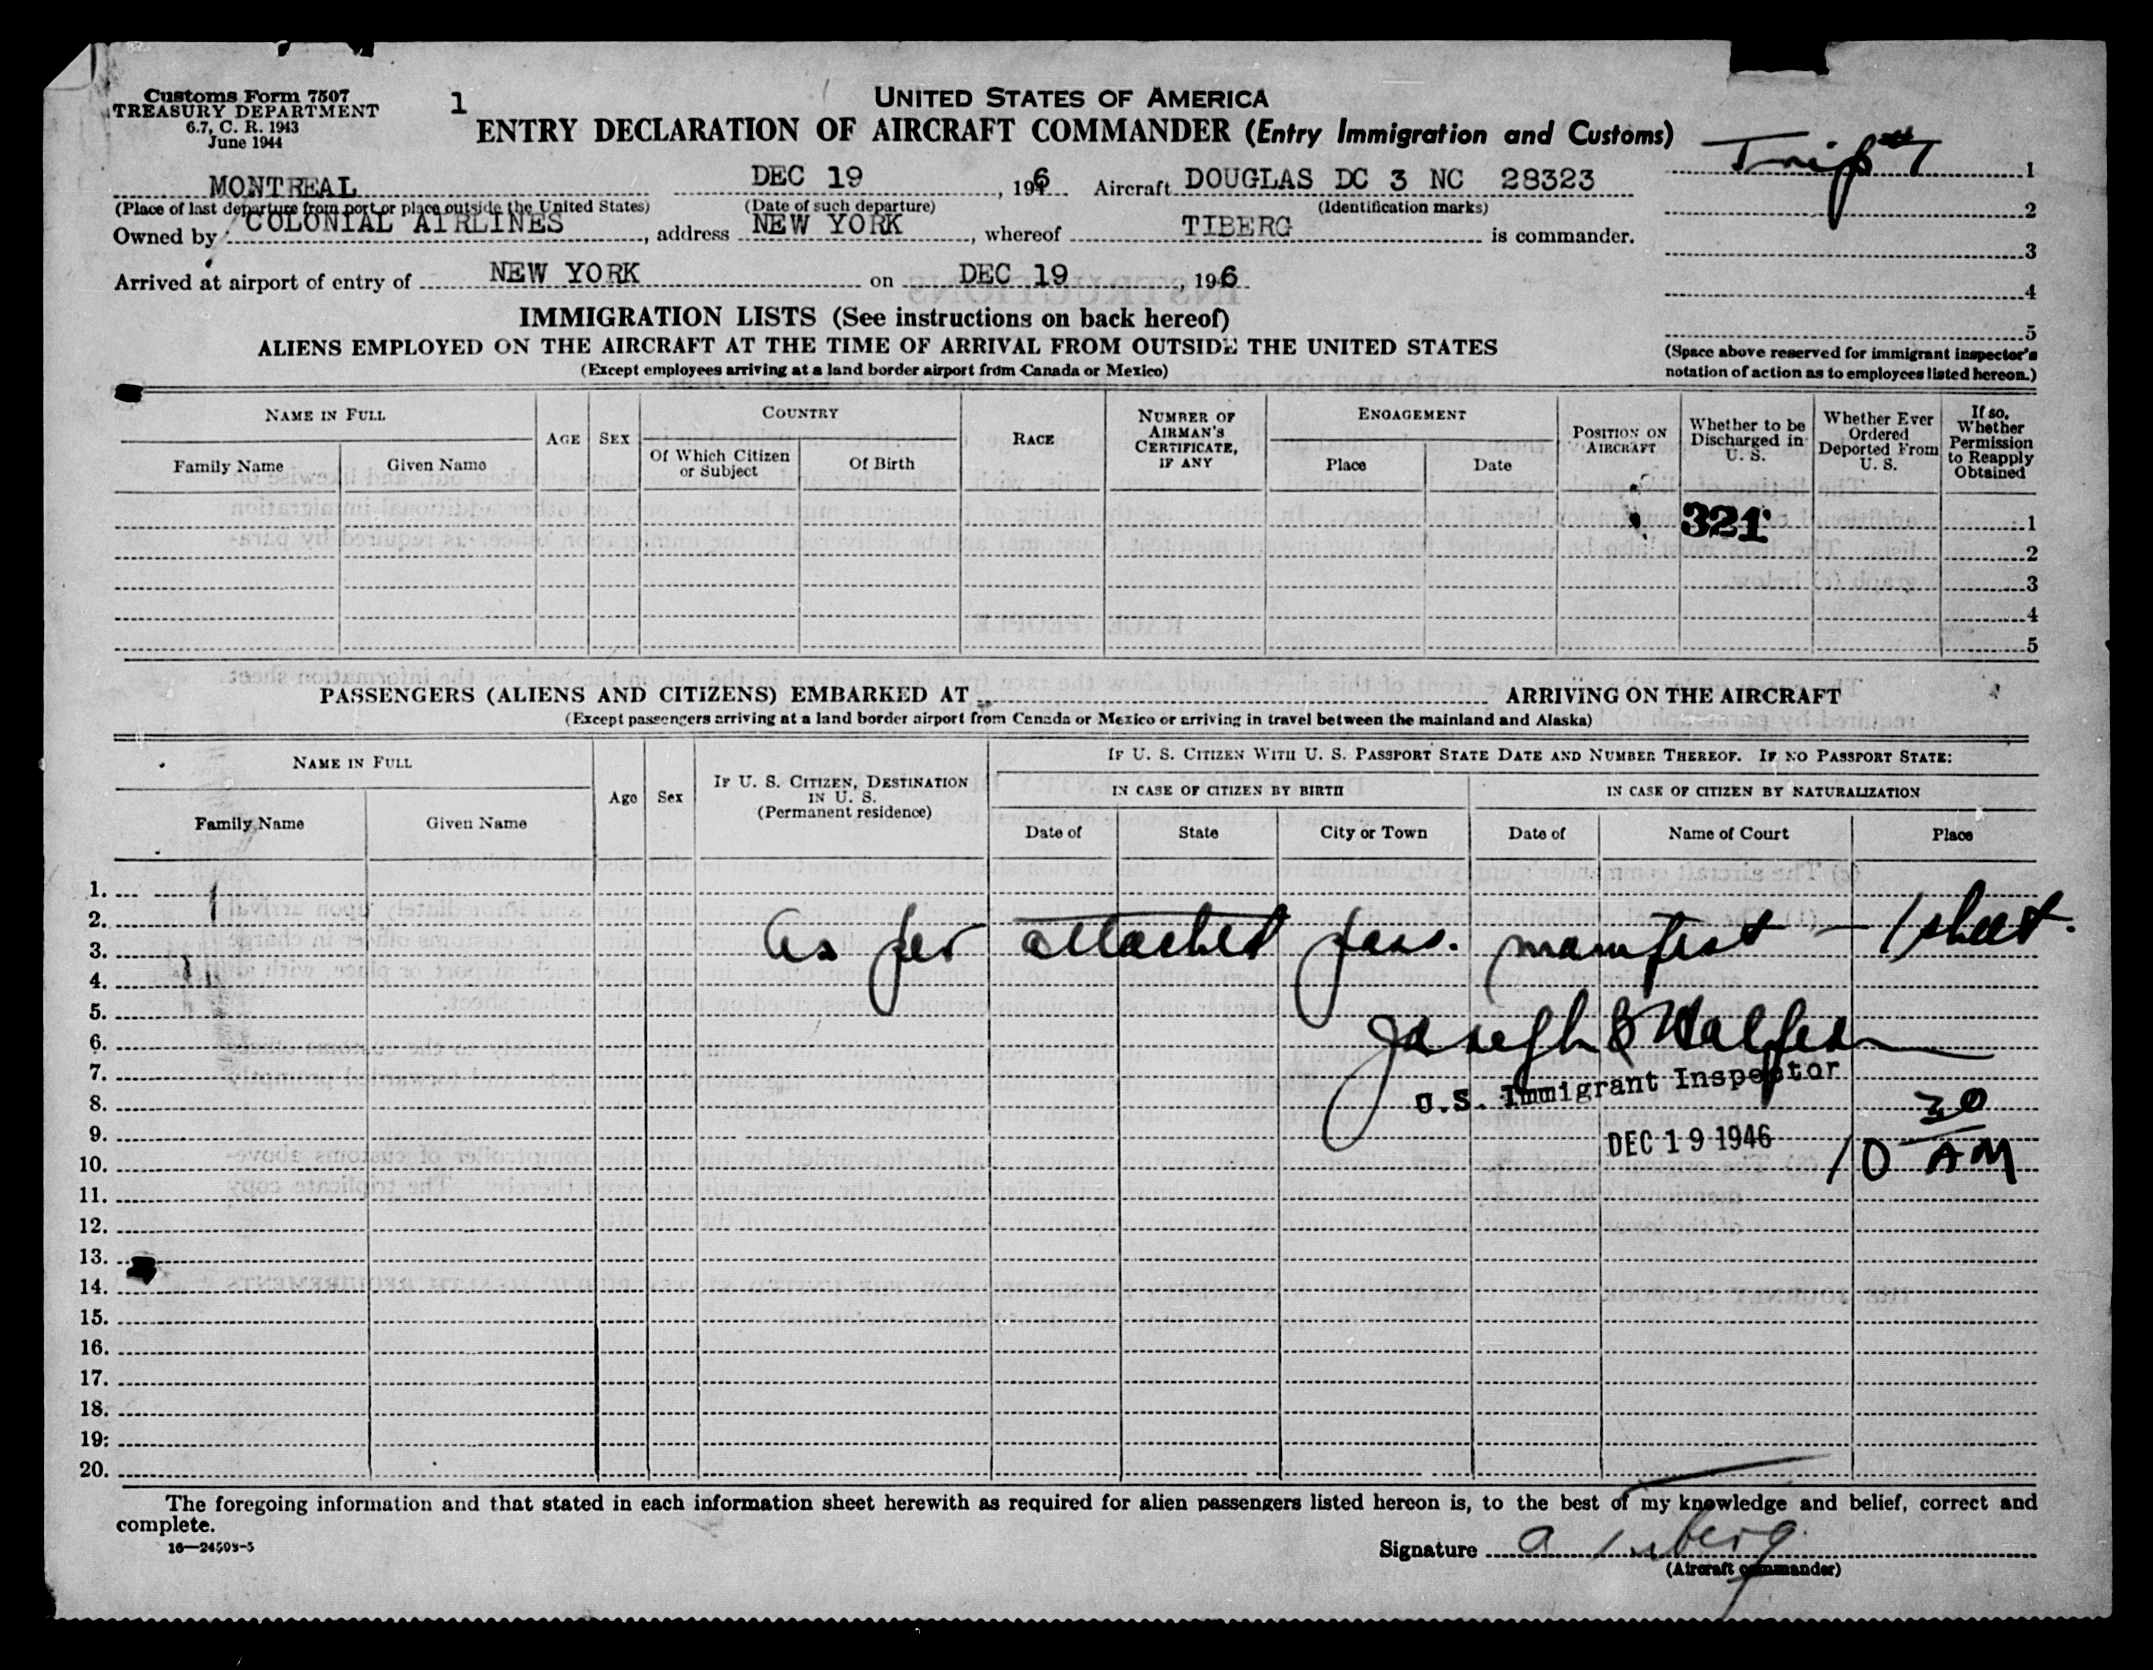 Customs Form 7507
TREASURY DEPARTMENT
6.7, C. R. 1943
June 1944
1
UNITED STATES OF AMERICA
ENTRY DECLARATION OF AIRCRAFT COMMANDER (Entry Immigration and Customs)
Trip #7
MONTREAL DEC 19, 1946 Aircraft DOUGLAS DC 3 NC 28323
(Place of last departure from port or place outside the United States) (Date of such departure) (Identification marks)
Owned by COLONIAL AIRLINES, address NEW YORK, whereof TIBERG is commander.
Arrived at airport of entry of NEW YORK on DEC 19, 1946
1
2
3
4
5
(Space above reserved for immigrant inspector's
notation of action as to employees listed hereon.)
IMMIGRATION LISTS (See instructions on back hereof)
ALIENS EMPLOYED ON THE AIRCRAFT AT THE TIME OF ARRIVAL FROM OUTSIDE THE UNITED STATES
(Except employees arriving at a land border airport from Canada or Mexico)
NAME IN FULL
Family Name
Given Name
AGE
SEX
COUNTRY
Of Which Citizen
or Subject
Of Birth
RACE
NUMBER OF
AIRMAN'S
CERTIFICATE,
IF ANY
ENGAGEMENT
Place
Date
POSITION ON
AIRCRAFT
Whether to be
Discharged in
U. S.
Whether Ever
Ordered
Deported From
U. S.
If so,
Whether
Permission
to Reapply
Obtained
321
1
2
3
4
5
PASSENGERS (ALIENS AND CITIZENS) EMBARKED AT ARRIVING ON THE AIRCRAFT
(Except passengers arriving at a land border airport from Canada or Mexico or arriving in travel between the mainland and Alaska)
NAME IN FULL
Family Name
Given Name
Age
Sex
IF U. S. CITIZEN, DESTINATION
IN U. S.
(Permanent residence)
IF U. S. CITIZEN WITH U. S. PASSPORT STATE DATE AND NUMBER THEREOF. IF NO PASSPORT STATE:
IN CASE OF CITIZEN BY BIRTH
Date of
State
City or Town
IN CASE OF CITIZEN BY NATURALIZATION
Date of
Name of Court
Place
1.
2.
As per attached pass. manifest – 1 sheet.
3.
4.
5.
Joseph
6.
7.
U.S. Immigrant Inspector
8.
9.
DEC 19 1946
10 30 AM
10.
11.
12.
13.
14.
15.
16.
17.
18.
19.
20.
The foregoing information and that stated in each information sheet herewith as required for alien passengers listed hereon is, to the best of my knowledge and belief, correct and
complete.
16—24598-5
Signature A Tiberg
(Aircraft commander)